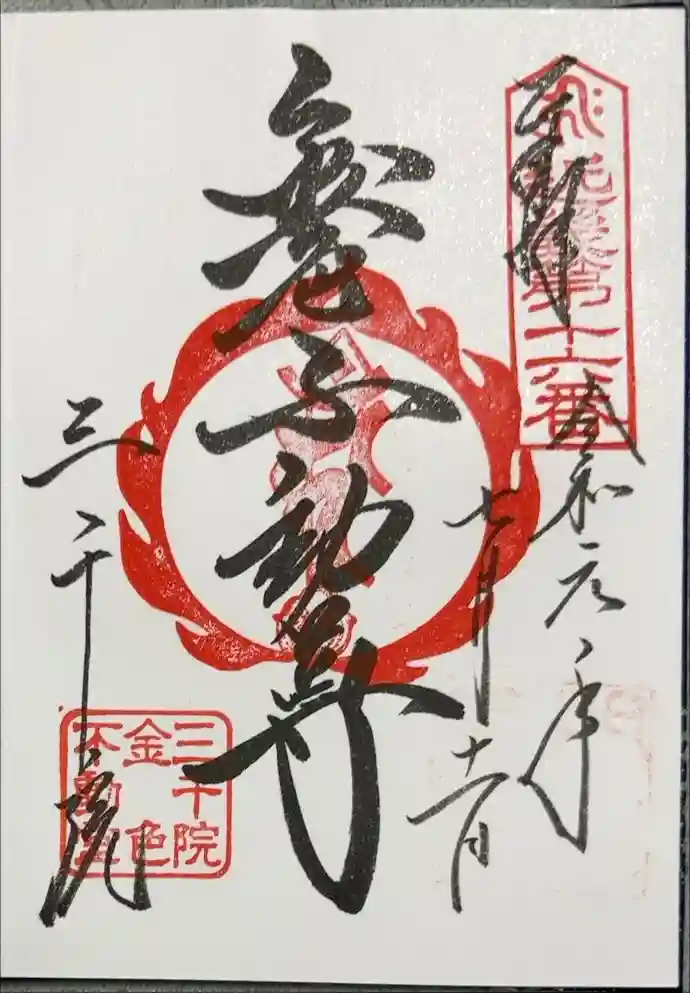 奉拝
第十六番
令和元年
七月十一日
不動尊
三千院
三千院
金色
不動堂